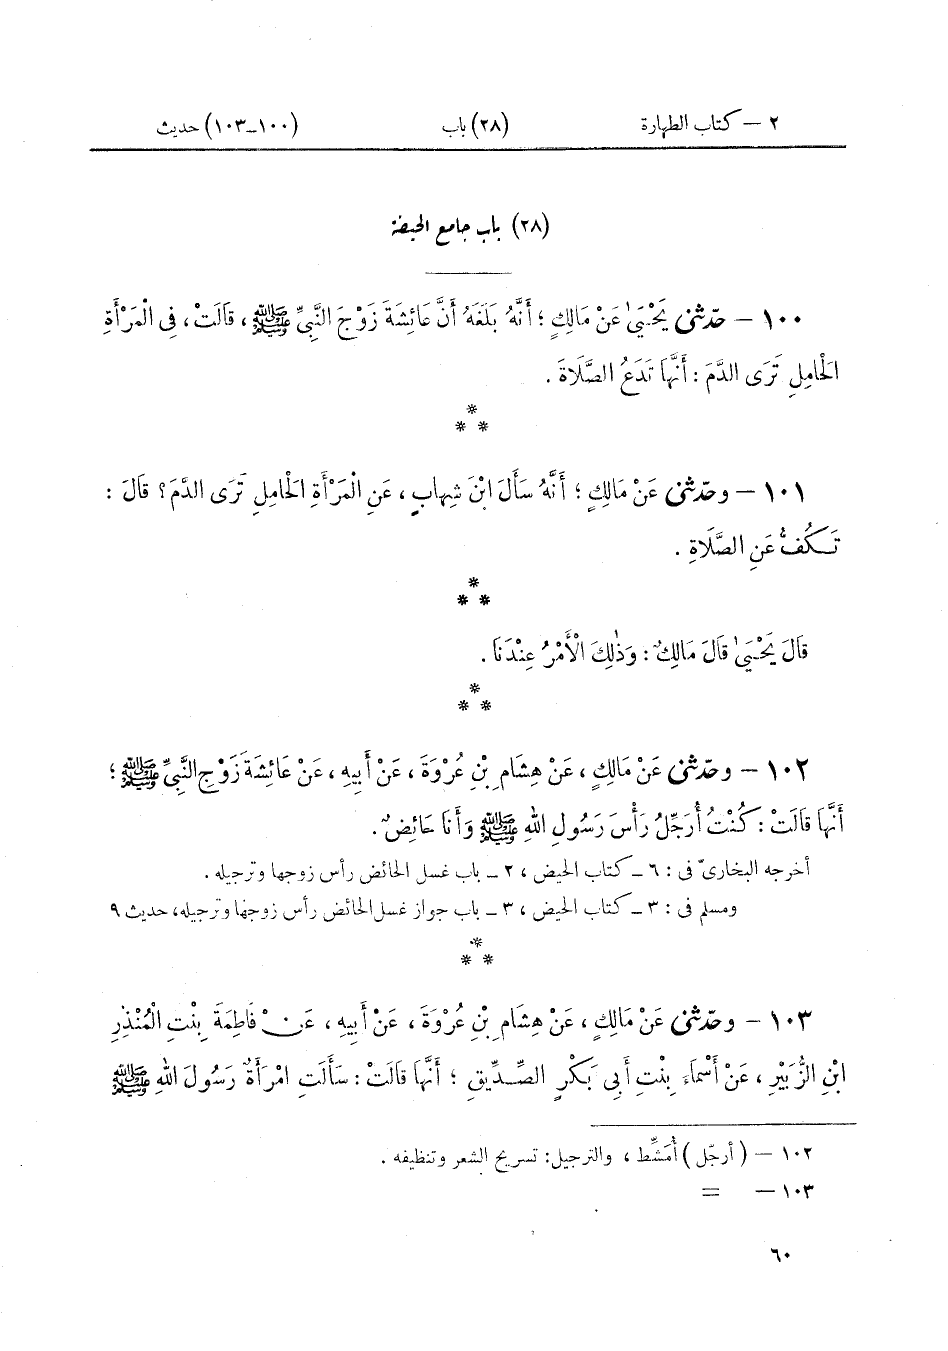 ٢ – كتاب الطهارة (٢٨) باب (١٠٠–١٠٣) حديث
(٢٨) باب جامع الحيضة
١٠٠ – حدّثنى يَحْيَىٰ عَنْ مَالِكٍ ؛ أَنَّهُ بَلَغَهُ أَنَّ عَائِشَةَ زَوْجَ النَّبِيِّ ﷺ ، قَالَتْ ، فِى الْمَرْأَةِ
الْحَامِلِ تَرَى الدَّمَ : أَنَّهَا تَدَعُ الصَّلَاةَ .
*
* *
١٠١ – وحدّثنى عَنْ مَالِكٍ ؛ أَنَّهُ سَأَلَ ابْنَ شِهَابٍ ، عَنِ الْمَرْأَةِ الْحَامِلِ تَرَى الدَّمَ ؟ قَالَ :
تَكُفُّ عَنِ الصَّلَاةِ .
*
* *
قَالَ يَحْيَىٰ قَالَ مَالِكٌ : وَذٰلِكَ الْأَمْرُ عِنْدَنَا .
*
* *
١٠٢ – وحدّثنى عَنْ مَالِكٍ ، عَنْ هِشَامِ بْنِ عُرْوَةَ ، عَنْ أَبِيهِ ، عَنْ عَائِشَةَ زَوْجِ النَّبِيِّ ﷺ ؛
أَنَّهَا قَالَتْ : كُنْتُ أُرَجِّلُ رَأْسَ رَسُولِ اللهِ ﷺ وَأَنَا حَائِضٌ .
أخرجه البخارىّ فى : ٦ – كتاب الحيض ، ٢ – باب غسل الحائض رأس زوجها وترجيله .
ومسلم فى : ٣ – كتاب الحيض ، ٣ – باب جواز غسل الحائض رأس زوجها وترجيله، حديث ٩
*
* *
١٠٣ – وحدّثنى عَنْ مَالِكٍ ، عَنْ هِشَامِ بْنِ عُرْوَةَ ، عَنْ أَبِيهِ ، عَنْ فَاطِمَةَ بِنْتِ الْمُنْذِرِ
ابْنِ الزُّبَيْرِ ، عَنْ أَسْمَاءَ بِنْتِ أَبِى بَكْرٍ الصِّدِّيقِ ؛ أَنَّهَا قَالَتْ : سَأَلَتِ امْرَأَةٌ رَسُولَ اللهِ ﷺ
١٠٢ – ( أرجّل ) أُمَشِّط ، والترجيل : تسريح الشعر وتنظيفه .
١٠٣ – =
٦٠